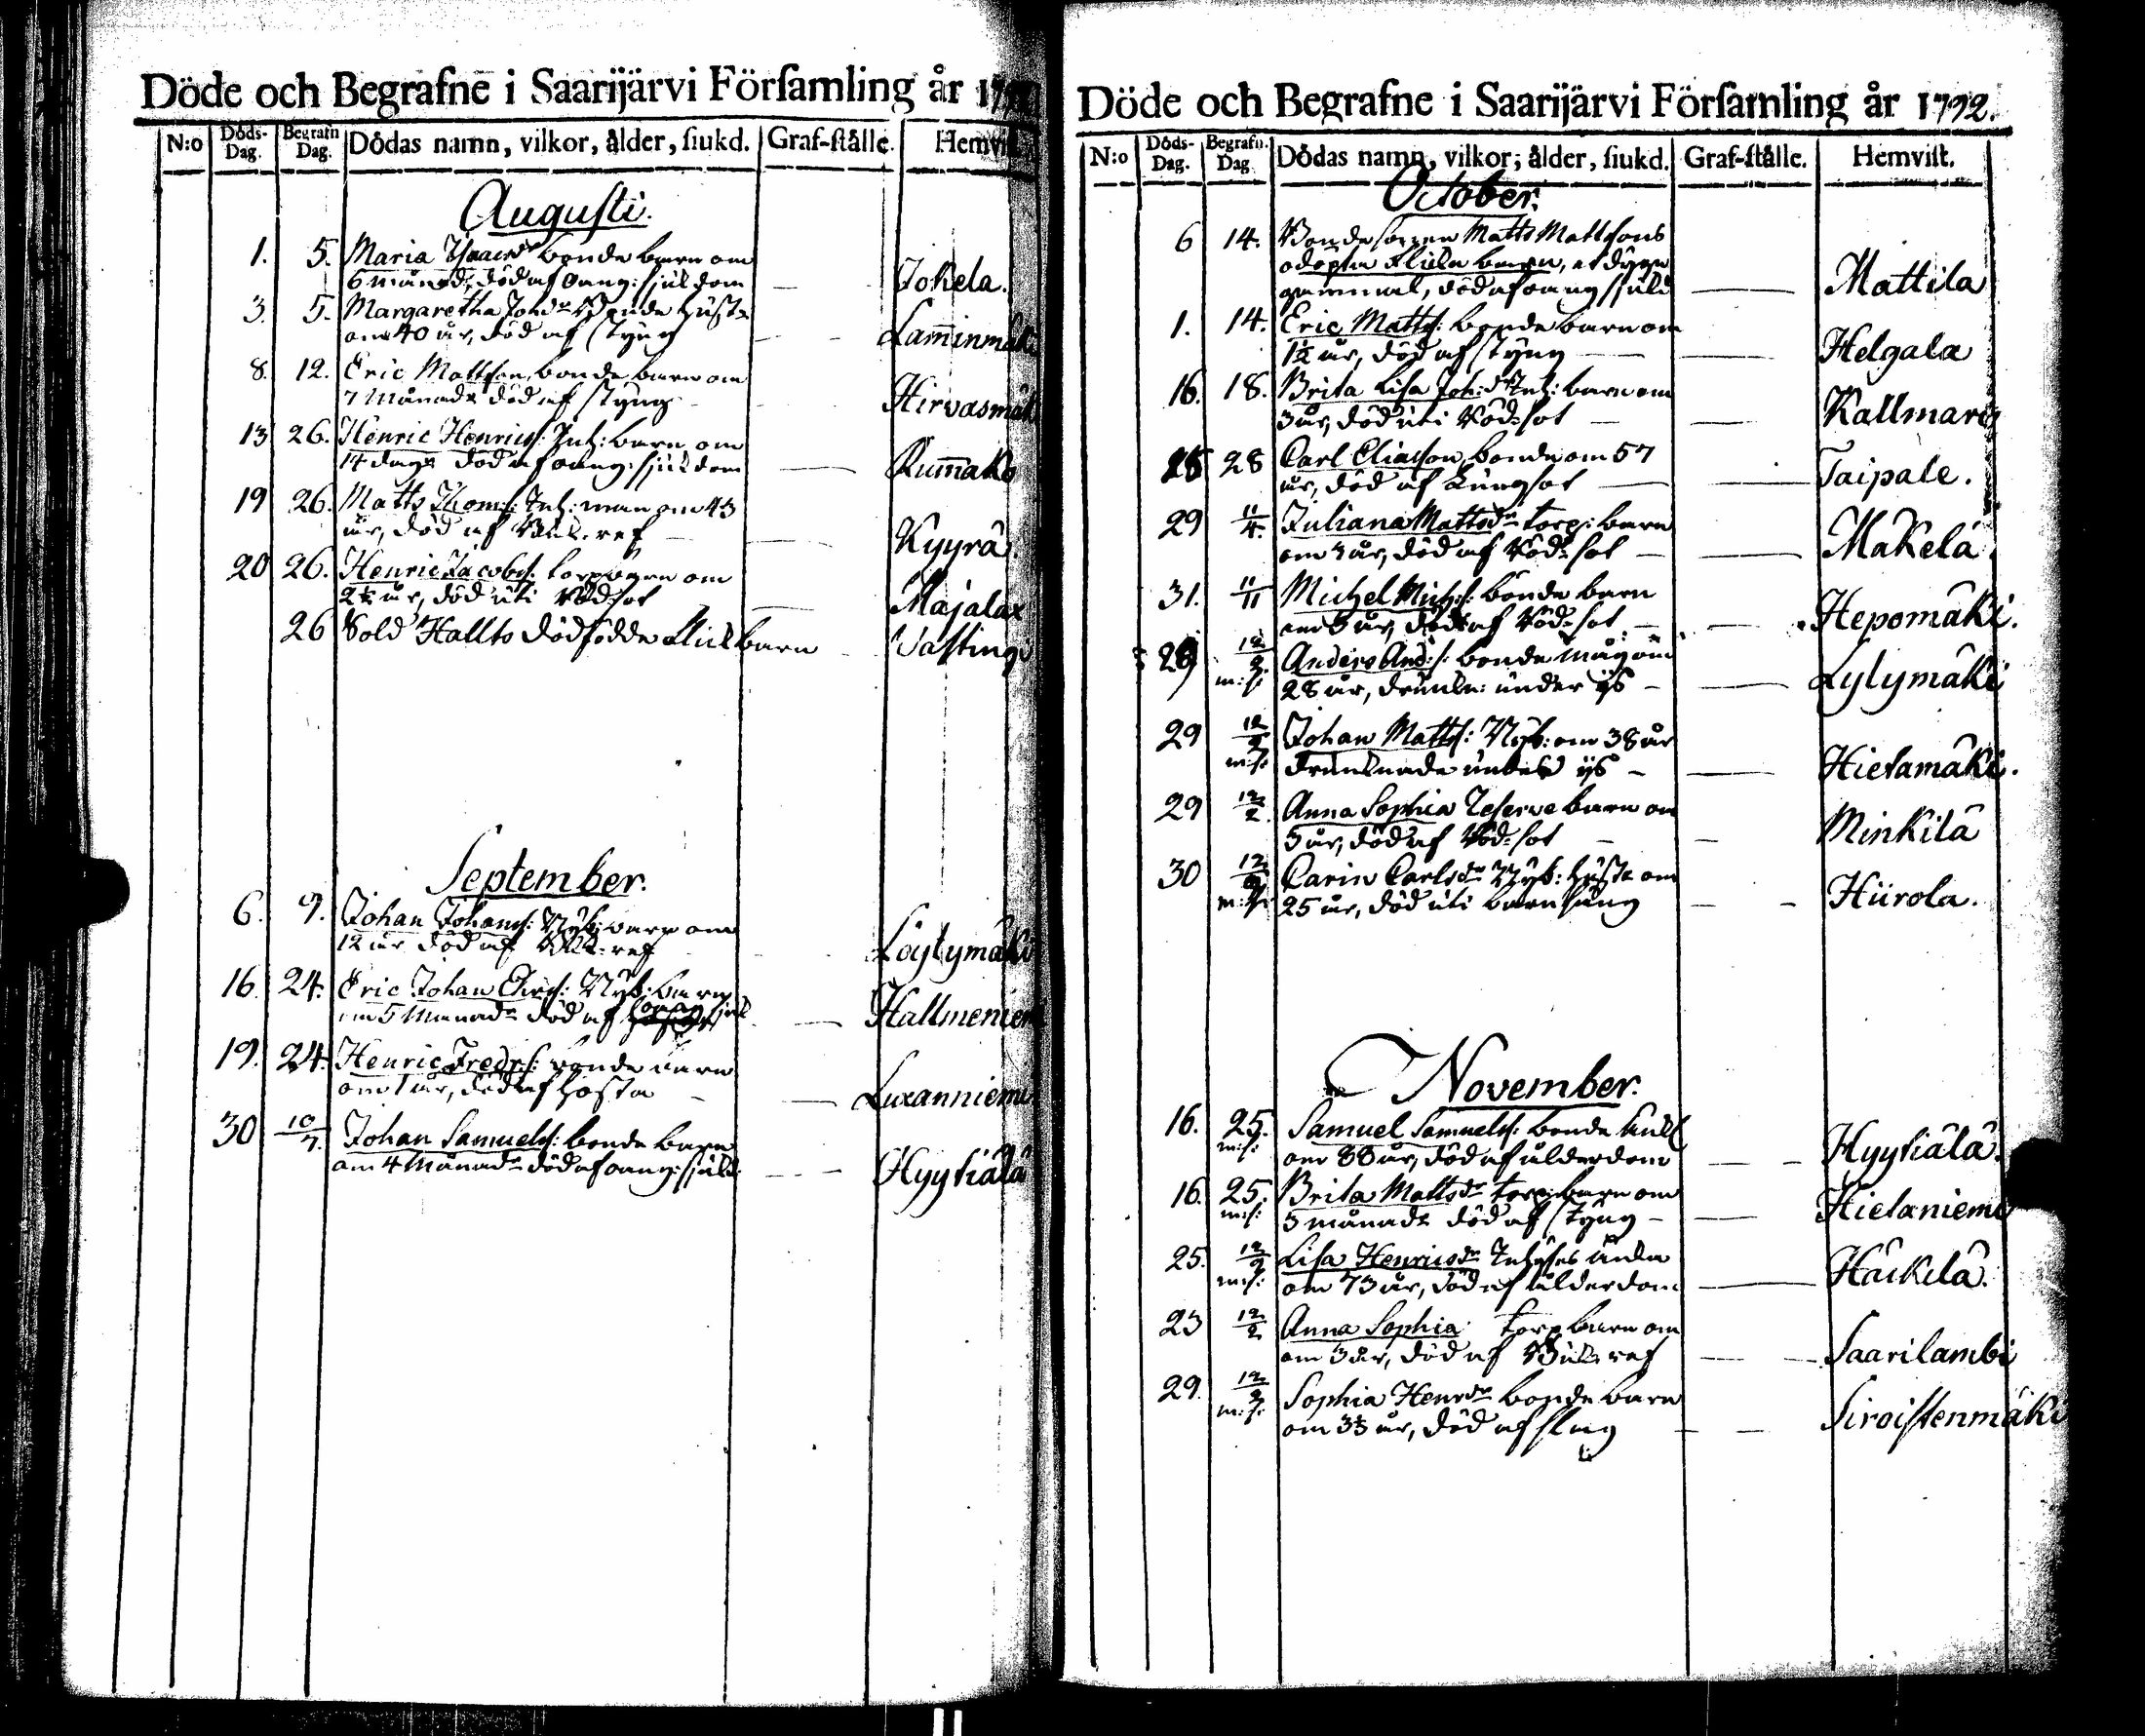 Döde och Begrafne i Saarijärvi Församling år 1792
N:o Döds-Dag. Begrafn Dag. Dödas namn, vilkor, ålder, siukd. Graf-ställe. Hemvist.
Augusti.
1. 5. Maria Isaacsdr bonde barn om
6 månad:, död af oang: sjukdom Jokela.
3. 5. Margaretha Johdr Bonde hustr
om 40 år, död af styng Laminmäki
8. 12. Eric Mattson bonde barn om
7 Månadr död af styng Hirvasmäki
13 26. Henric Henrics: Inh: barn om
14 dagr död af oang: sjukdom Kumako
19 26. Matts Thoms: Inh: man om 43
år, död af Buk-ref Kyyrä.
20 26. Henric Jacobs: torp barn om
2½ år, död uti Röd-sot Majalax
26 Sold Hallts dödfödde flickbarn Vastinge
September.
6. 9. Johan Johans: Nyb: barn om
12 år död af Buk-ref Löytymäki
16. 24. Eric Johan Erics: Nyb: barn
om 5 Månadr död af oang sjuk Hallmeniem
19. 24. Henric Fredrs: bonde barn
om 1 år, död af hosta Luxanniemi
30 10/7. Johan Samuels: bonde barn
om 4 Månadr död af oang: sjukd: Hyytiälä
Döde och Begrafne i Saarijärvi Församling år 1792.
N:o Döds-Dag. Begrafn. Dag Dödas namn, vilkor, ålder, siukd. Graf-ställe. Hemvist.
October.
6 14. Bondesonen Matts Mattsons
odöpta flicke barn, et dygn
gammal, död af oang sjukd Mattila
1. 14. Eric Matts: bonde barn om
1½ år, död af styng Helgala
16. 18. Brita Lisa Joh:dr Inh: barn om
3 år, död uti Röd-sot Kallmari
25 28 Carl Eliasson bonde om 57
år, död af Lungsot Taipale.
29 11/4. Juliana Mattsdr torp: barn
om 3 år, död af Röd-sot Mäkelä.
31. 11/11 Michel Mich:s: bonde barn
om 3 år, död af Röd-sot Hepomäki.
29 12/2. m:s: Anders And:s: bonde måg om
28 år, drunkn: under ijs Lylymäki
29 12/2 m:s: Johan Matts: Nyb: om 38 år
drunknade under ijs Hietamäki.
29 12/2. Anna Sophia Reserve barn om
5 år, död af Röd-sot Minkilä
30 12/2 m:s: Carin Carlsdr Nyb: hustr om
25 år, död uti barnsäng Hiirola.
November.
16. 25. m:s: Samuel Samuels: bonde
om 88 år, död af ålderdom Hyytiälä.
16. 25. m:s: Brita Mattsdr torp: barn om
3 månadr död af styng Hietaniemi
25. 12/2 m:s: Lisa Henricsdr Inhyses änka
om 73 år, död af ålderdom Häikilä.
23 12/2 Anna Sophia torp barn om
om 3 år, död af Buk-ref Saarilambi
29. 12/2 m:s: Sophia Henrdr bonde barn
om 3½ år, död af slag Siroistenmäki